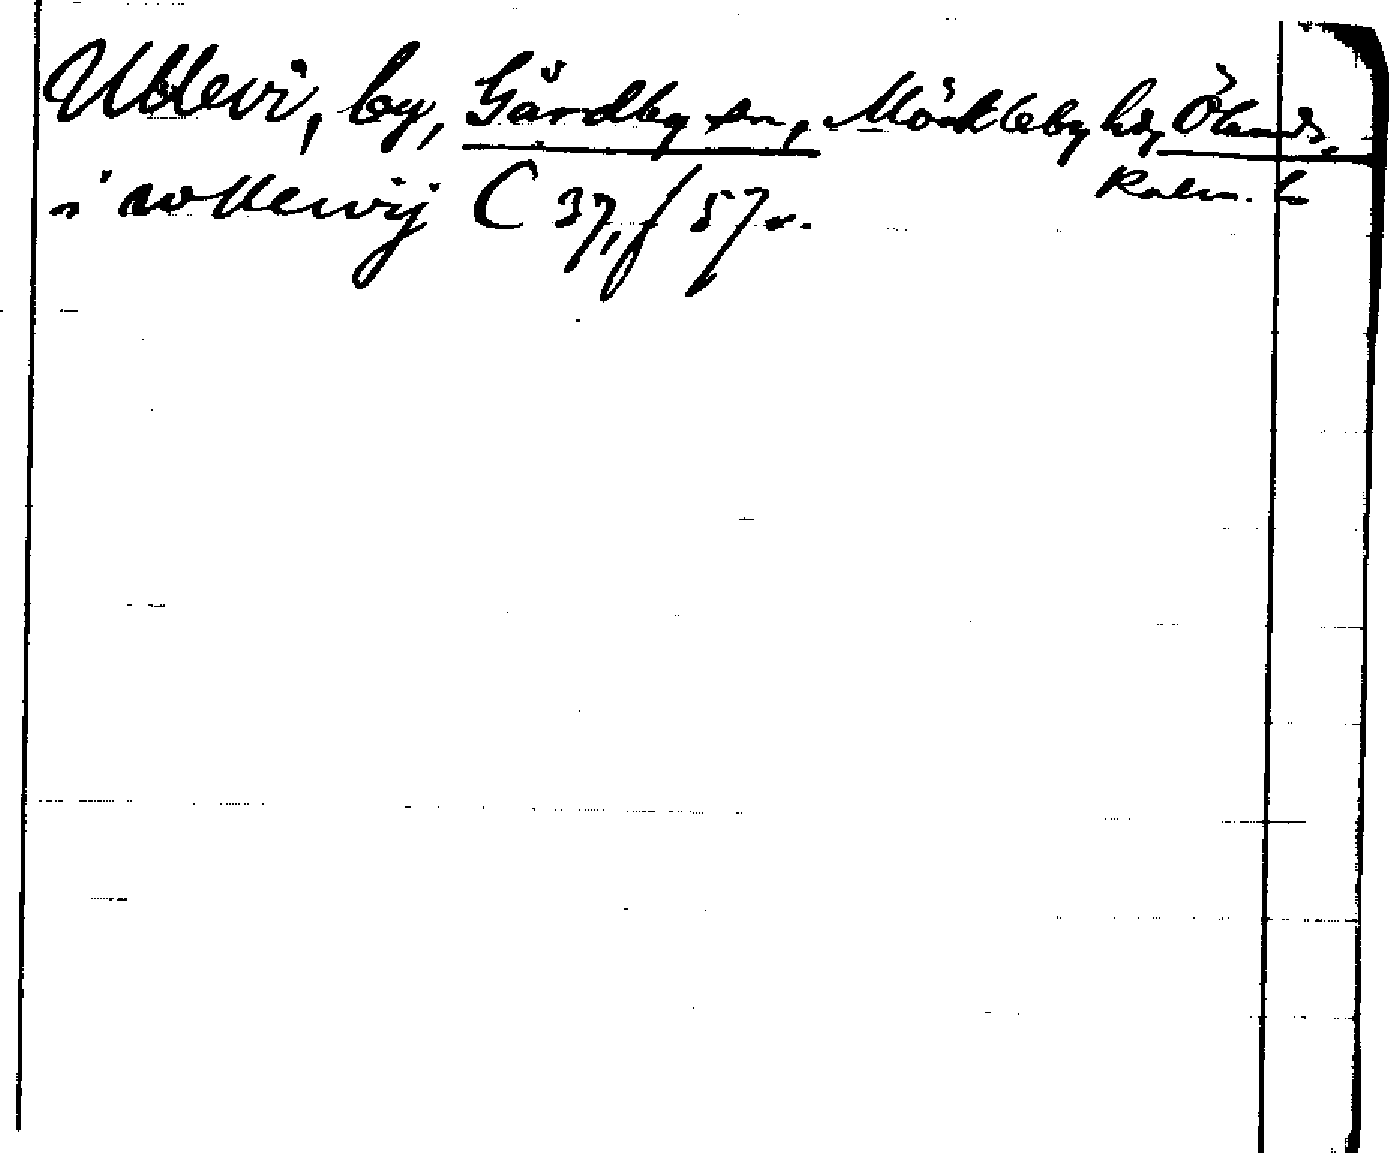 Ullevi, by, Gårdby sn, Möckleby hd, Ölands,
Kalm. l.
i wllewij C 37, f 57 v.